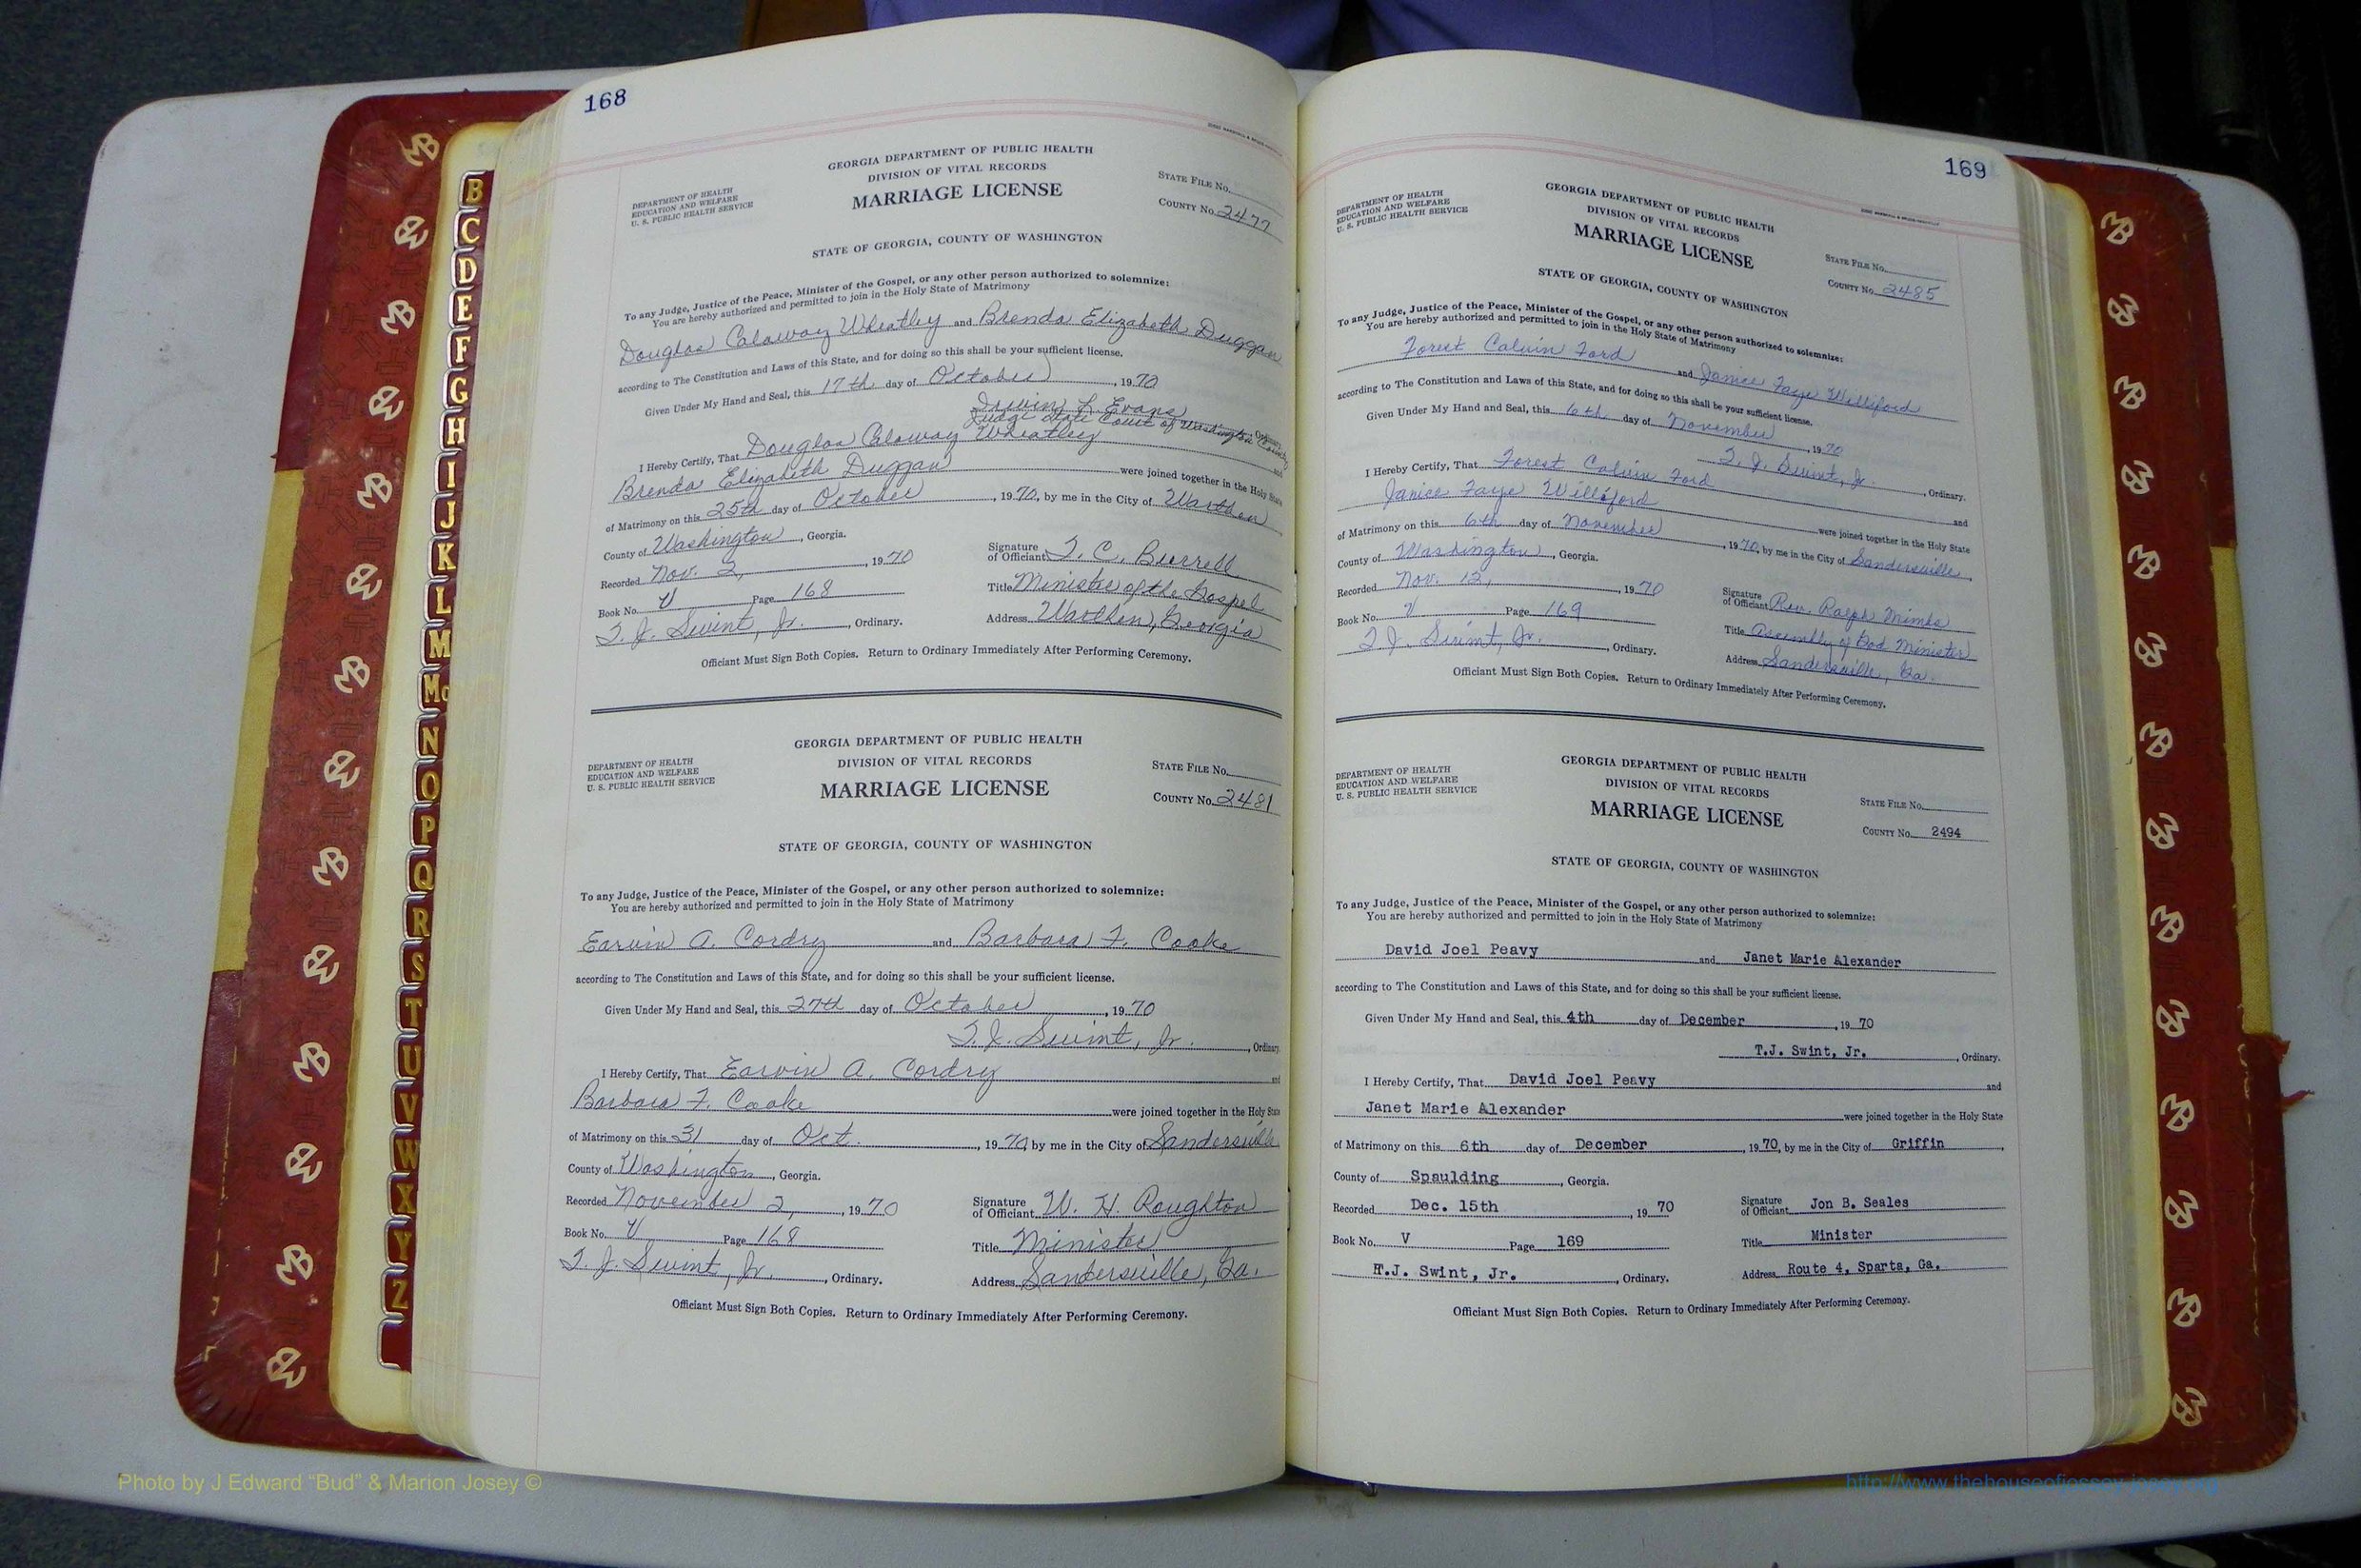 168
GEORGIA DEPARTMENT OF PUBLIC HEALTH
DIVISION OF VITAL RECORDS
MARRIAGE LICENSE
DEPARTMENT OF HEALTH
EDUCATION AND WELFARE
U. S. PUBLIC HEALTH SERVICE
STATE FILE No.
COUNTY No. 2477
STATE OF GEORGIA, COUNTY OF WASHINGTON
To any Judge, Justice of the Peace, Minister of the Gospel, or any other person authorized to solemnize:
You are hereby authorized and permitted to join in the Holy State of Matrimony
Douglas Calaway Wheatley and Brenda Elizabeth Duggan
according to The Constitution and Laws of this State, and for doing so this shall be your sufficient license.
Given Under My Hand and Seal, this 17th day of October, 1970
Irwin L. Evans
Judge State Court of Washington County
I Hereby Certify, That Douglas Calaway Wheatley and
Brenda Elizabeth Duggan were joined together in the Holy State
of Matrimony on this 25th day of October, 1970, by me in the City of Warthen
County of Washington, Georgia.
Recorded Nov. 2, 1970
Book No. V Page 168
T. J. Swint, Jr., Ordinary.
Signature of Officiant T. C. Burrell
Title Minister of the Gospel
Address Warthen, Georgia
Officiant Must Sign Both Copies. Return to Ordinary Immediately After Performing Ceremony.
GEORGIA DEPARTMENT OF PUBLIC HEALTH
DIVISION OF VITAL RECORDS
MARRIAGE LICENSE
DEPARTMENT OF HEALTH
EDUCATION AND WELFARE
U. S. PUBLIC HEALTH SERVICE
STATE FILE No.
COUNTY No. 2481
STATE OF GEORGIA, COUNTY OF WASHINGTON
To any Judge, Justice of the Peace, Minister of the Gospel, or any other person authorized to solemnize:
You are hereby authorized and permitted to join in the Holy State of Matrimony
Earvin A. Cordry and Barbara F. Cooke
according to The Constitution and Laws of this State, and for doing so this shall be your sufficient license.
Given Under My Hand and Seal, this 27th day of October, 1970
T. J. Swint, Jr., Ordinary.
I Hereby Certify, That Earvin A. Cordry and
Barbara F. Cooke were joined together in the Holy State
of Matrimony on this 31 day of Oct., 1970, by me in the City of Sandersville
County of Washington, Georgia.
Recorded November 2, 1970
Book No. V Page 168
T. J. Swint, Jr., Ordinary.
Signature of Officiant W. H. Roughton
Title Minister
Address Sandersville, Ga.
Officiant Must Sign Both Copies. Return to Ordinary Immediately After Performing Ceremony.
169
GEORGIA DEPARTMENT OF PUBLIC HEALTH
DIVISION OF VITAL RECORDS
MARRIAGE LICENSE
DEPARTMENT OF HEALTH
EDUCATION AND WELFARE
U. S. PUBLIC HEALTH SERVICE
STATE FILE No.
COUNTY No. 2485
STATE OF GEORGIA, COUNTY OF WASHINGTON
To any Judge, Justice of the Peace, Minister of the Gospel, or any other person authorized to solemnize:
You are hereby authorized and permitted to join in the Holy State of Matrimony
Forest Calvin Ford and Janice Faye Williford
according to The Constitution and Laws of this State, and for doing so this shall be your sufficient license.
Given Under My Hand and Seal, this 6th day of November, 1970
T. J. Swint, Jr., Ordinary.
I Hereby Certify, That Forest Calvin Ford and
Janice Faye Williford were joined together in the Holy State
of Matrimony on this 6th day of November, 1970, by me in the City of Sandersville,
County of Washington, Georgia.
Recorded Nov. 12, 1970
Book No. V Page 169
T. J. Swint, Jr., Ordinary.
Signature of Officiant Rev. Ralph Mimbs
Title Assembly of God Minister
Address Sandersville, Ga.
Officiant Must Sign Both Copies. Return to Ordinary Immediately After Performing Ceremony.
GEORGIA DEPARTMENT OF PUBLIC HEALTH
DIVISION OF VITAL RECORDS
MARRIAGE LICENSE
DEPARTMENT OF HEALTH
EDUCATION AND WELFARE
U. S. PUBLIC HEALTH SERVICE
STATE FILE No.
COUNTY No. 2494
STATE OF GEORGIA, COUNTY OF WASHINGTON
To any Judge, Justice of the Peace, Minister of the Gospel, or any other person authorized to solemnize:
You are hereby authorized and permitted to join in the Holy State of Matrimony
David Joel Peavy and Janet Marie Alexander
according to The Constitution and Laws of this State, and for doing so this shall be your sufficient license.
Given Under My Hand and Seal, this 4th day of December, 1970
T.J. Swint, Jr., Ordinary.
I Hereby Certify, That David Joel Peavy and
Janet Marie Alexander were joined together in the Holy State
of Matrimony on this 6th day of December, 1970, by me in the City of Griffin,
County of Spaulding, Georgia.
Recorded Dec. 15th, 1970
Book No. V Page 169
T.J. Swint, Jr., Ordinary.
Signature of Officiant Jon B. Seales
Title Minister
Address Route 4, Sparta, Ga.
Officiant Must Sign Both Copies. Return to Ordinary Immediately After Performing Ceremony.
B
C
D
E
F
G
H
I
J
K
L
M
Mc
N
O
P
Q
R
S
T
U
V
W
X
Y
Z
Photo by J Edward “Bud” & Marion Josey ©
http://www.thehouseofjossey-josey.org